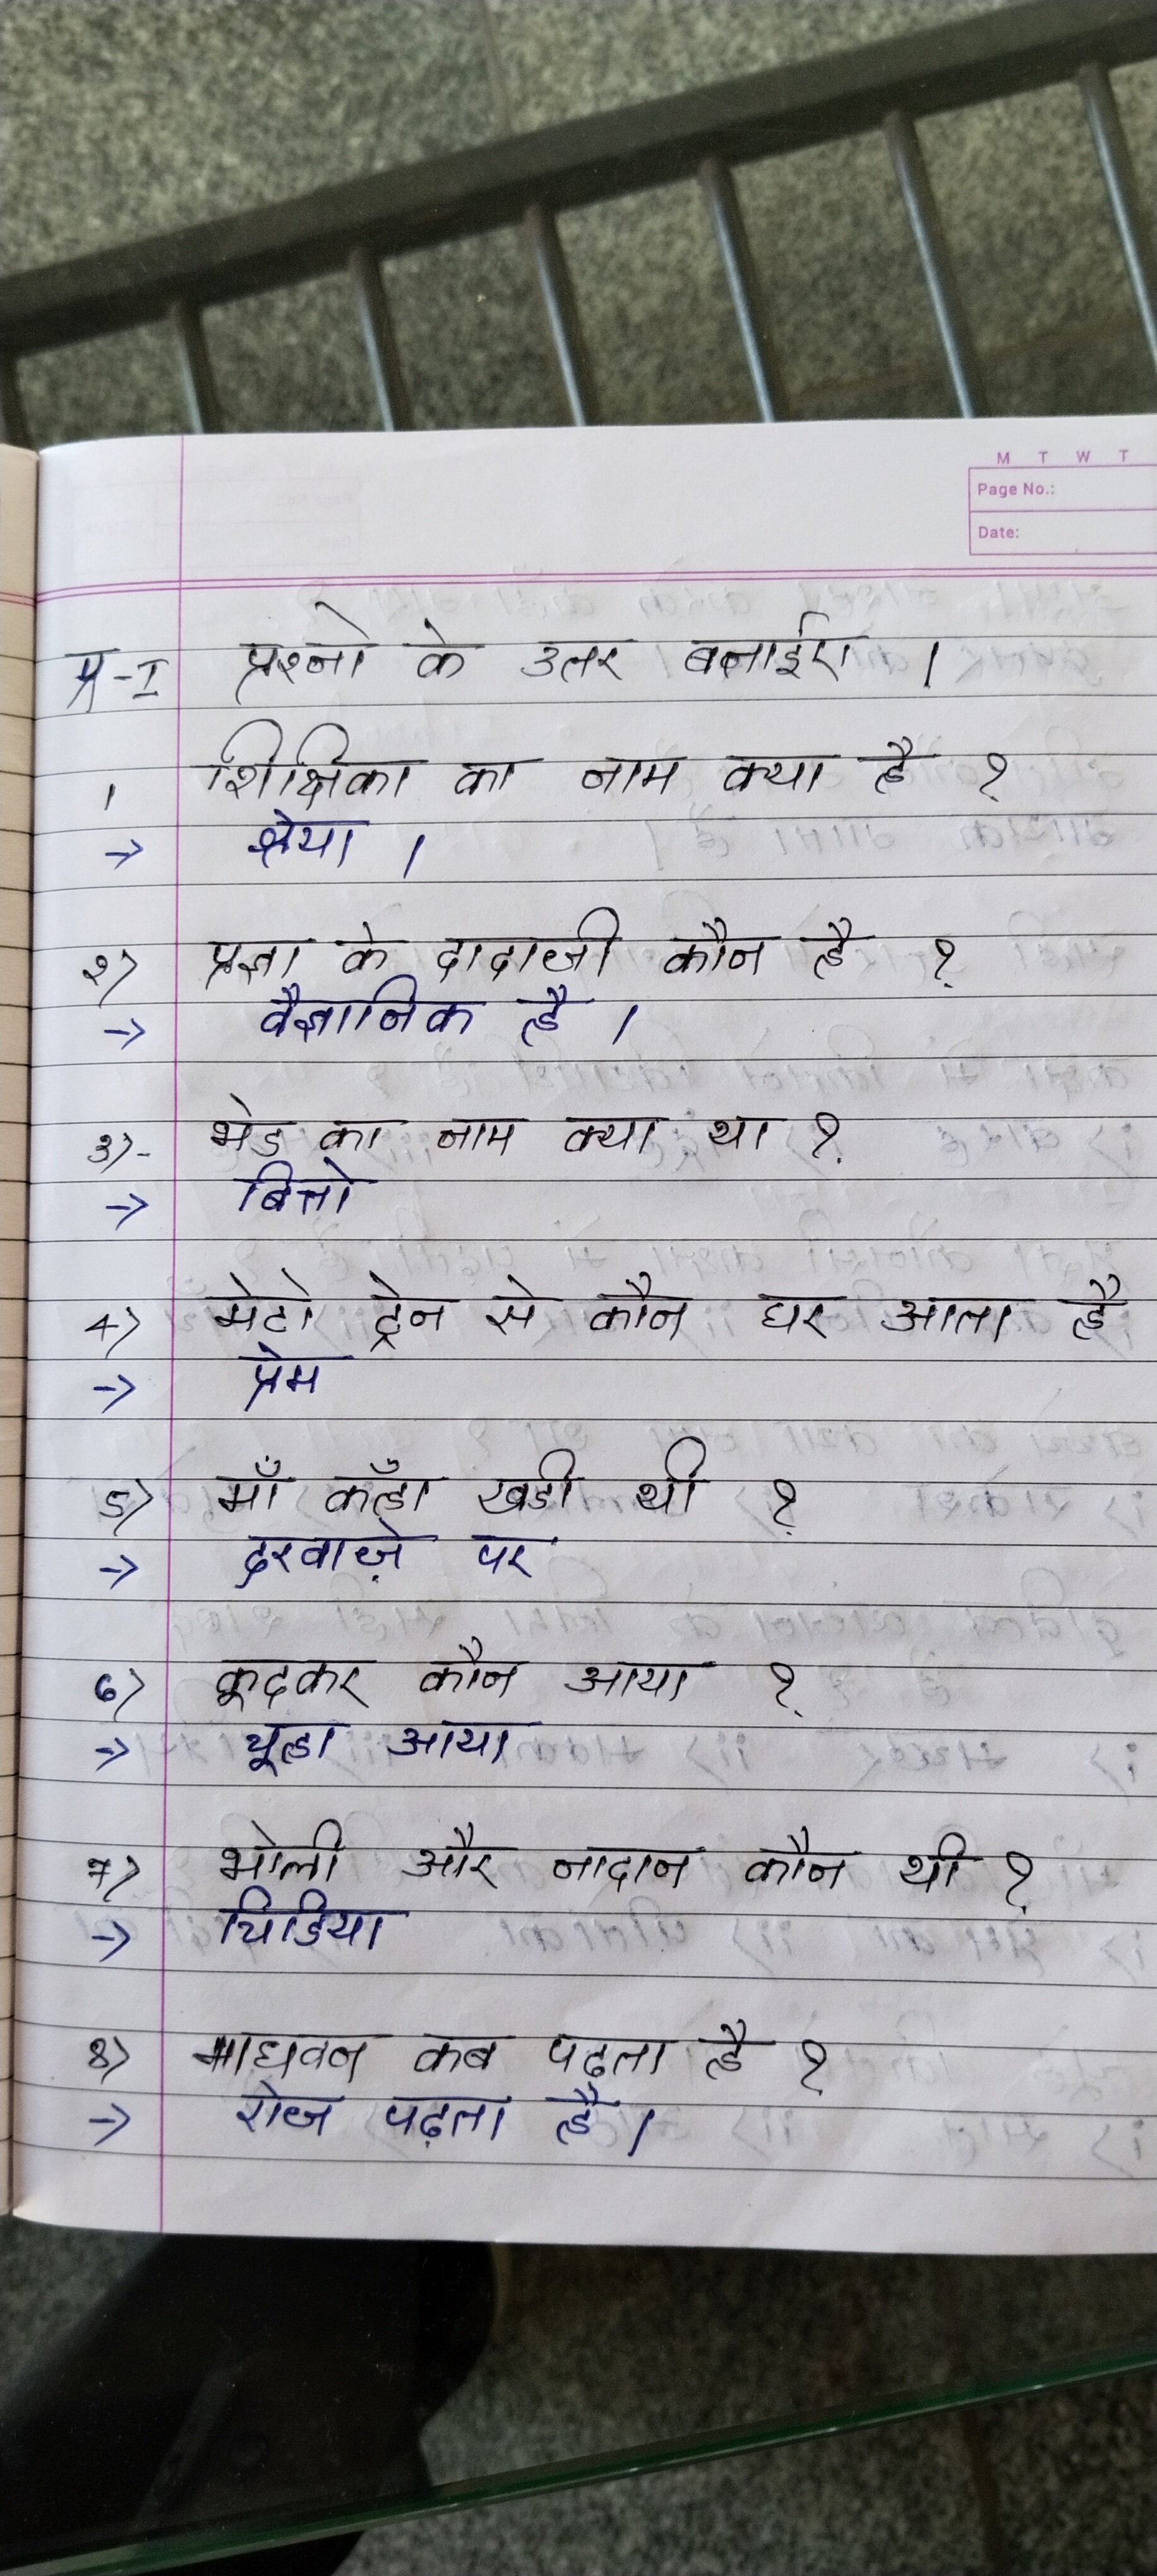 M T W T
Page No.:
Date:
प्र-I प्रश्नो के उत्तर बताईए ।
1 शिक्षिका का नाम क्या है ?
→ श्रेया ।
२) प्रज्ञा के दादाजी कौन है ?
→ वैज्ञानिक है ।
3)- भेड का नाम क्या था ?
→ बित्तो
4) मेटो ट्रेन से कौन घर आता है
→ प्रेम
5) माँ कहाँ खडी थी ?
→ दरवाज़े पर
6) कूदकर कौन आया ?
→ चूहा आया
7) भोली और नादान कौन थी ?
→ चिडिया
8) माधवन कब पढ़ता है ?
→ रोज पढ़ता है ।